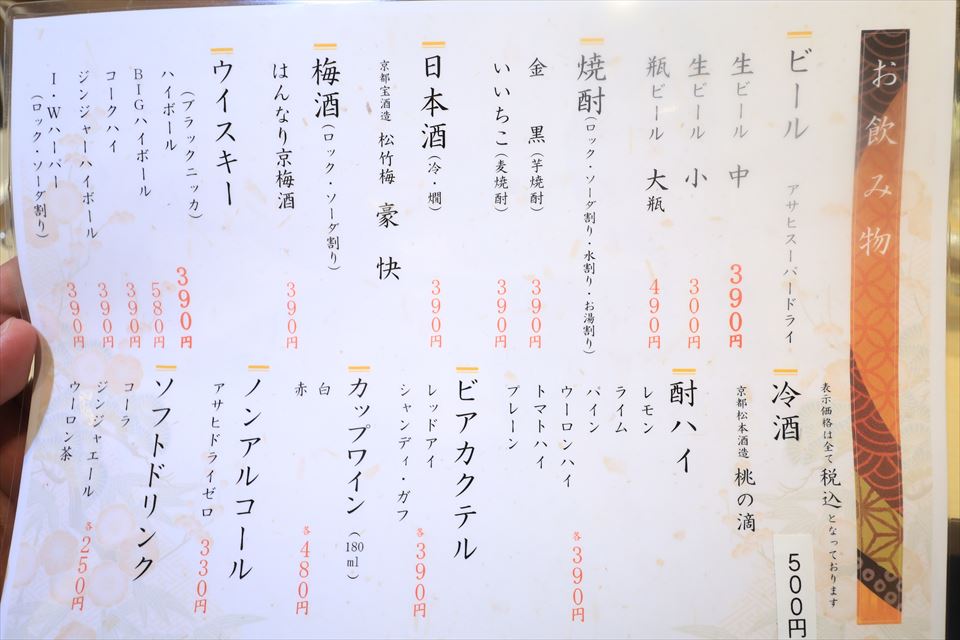 お飲み物
ビール アサヒスーパードライ
生ビール 中 390円
生ビール 小 300円
瓶ビール 大瓶 490円
焼酎（ロック・ソーダ割り・水割り・お湯割り）
金 黒（芋焼酎） 390円
いいちこ（麦焼酎） 390円
日本酒（冷・燗）
京都宝酒造 松竹梅 豪快 390円
梅酒（ロック・ソーダ割り）
はんなり京梅酒 390円
ウイスキー
（ブラックニッカ）
ハイボール 390円
BIGハイボール 580円
コークハイ 390円
ジンジャーハイボール 390円
I・Wハーパー
（ロック・ソーダ割り） 390円
表示価格は全て税込となっております
冷酒
京都松本酒造 桃の滴 500円
酎ハイ
レモン
ライム
パイン
ウーロンハイ
トマトハイ
プレーン
各390円
ビアカクテル
レッドアイ
シャンディ・ガフ
各390円
カップワイン（180ml）
白
赤
各480円
ノンアルコール
アサヒドライゼロ 330円
ソフトドリンク
コーラ
ジンジャエール
ウーロン茶
各250円